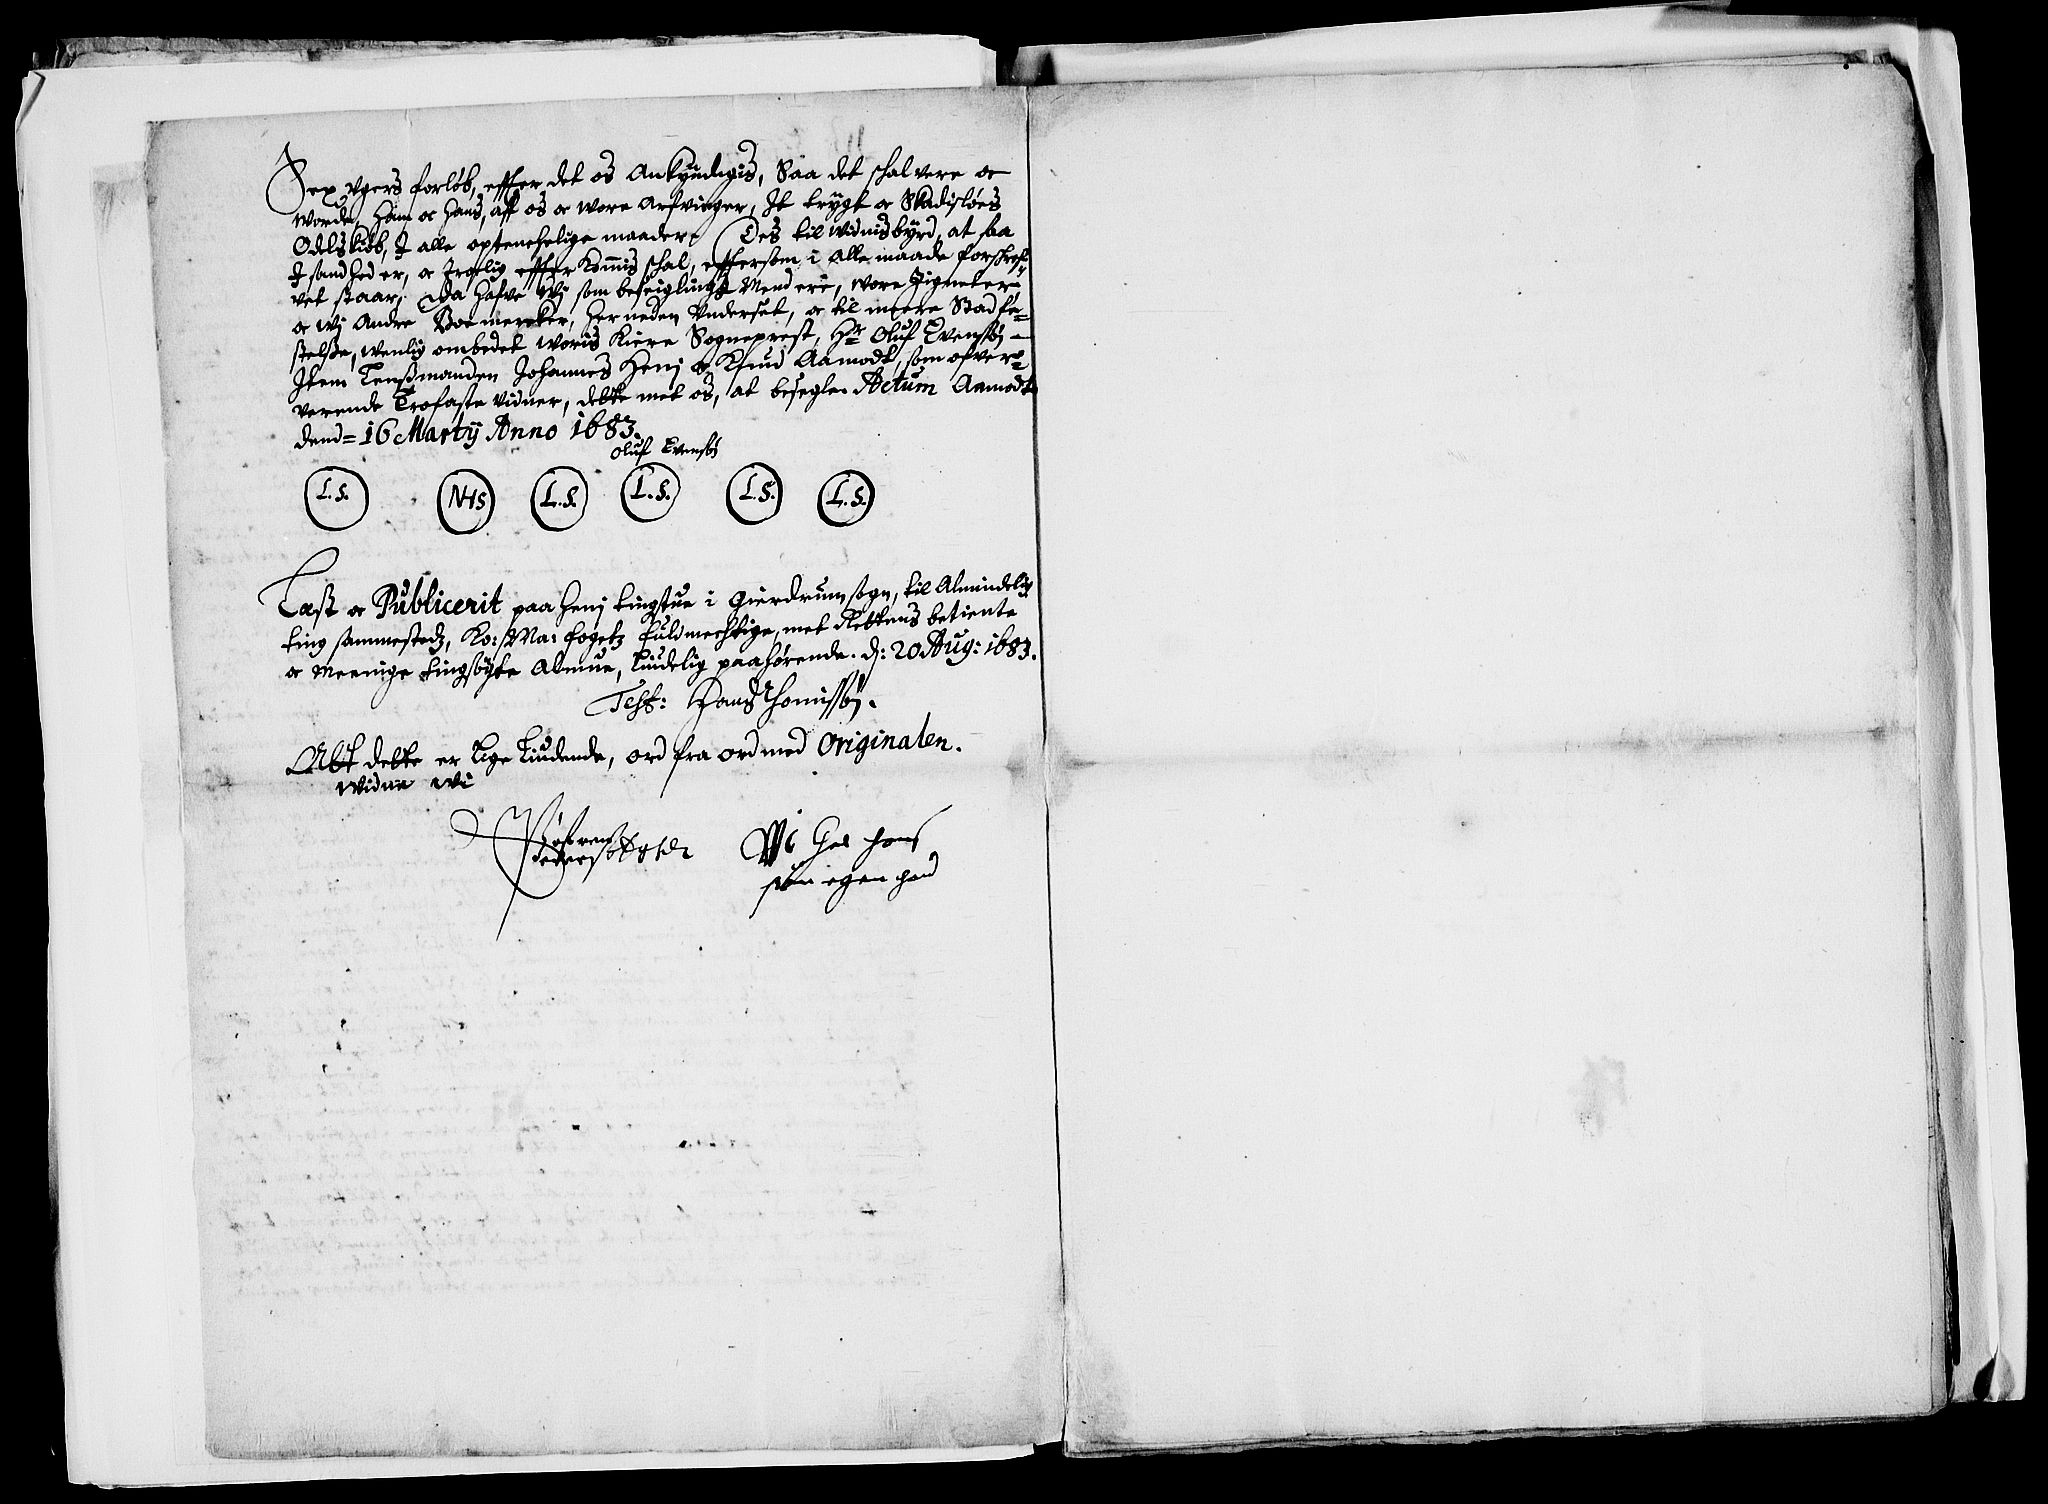 Sex Ugers forløb, effter det os Ankyndigis, Saa det schal vere oc
worde, ham oc hans, aff os oc wore Arfvinger, It trygt oc Skadisløes
Odelskiøb, I alle optenchelige maader. Des til widnisbyrd, at saa
I sandhed er, oc Iroelig effter kommis schal, effersom i alle maade forskref=
vet staar, Da hafve Wj som beseiglings Mend ere, wore Zigneter
oc wj Andre Boemercker, her neden Underset, oc til meere Stadfe=
stelse, wenlig ombedet woris Kiere Sogneprest, Hr Oluf Evensøn
Item Lensmanden Johannes Henj oc Knud Aamodt, som ofver=
verende Trofaste vidner, dette met os, at besegle. Actum Aamodt
dend= 16 Martÿ Anno 1683.
Oluf Evensøn
L.S. NHS L.S. L.S. L.S. L.S.
Læst oc Publicerit paa Henj tingstue i Gierdrum sogn, til Almindelig
ting sammestedz, Ko: Ma: fogetz fuldmechtige, met Rettens betiente
oc Meenige tingsøgte Almue, Liudelig paahørende. d: 20 Aug: 1683.
Test: Hans Thomissøn.
At dette er Lige Liudende, ord fra ord med Originalen.
Widne Wi
hans
søn egen hand